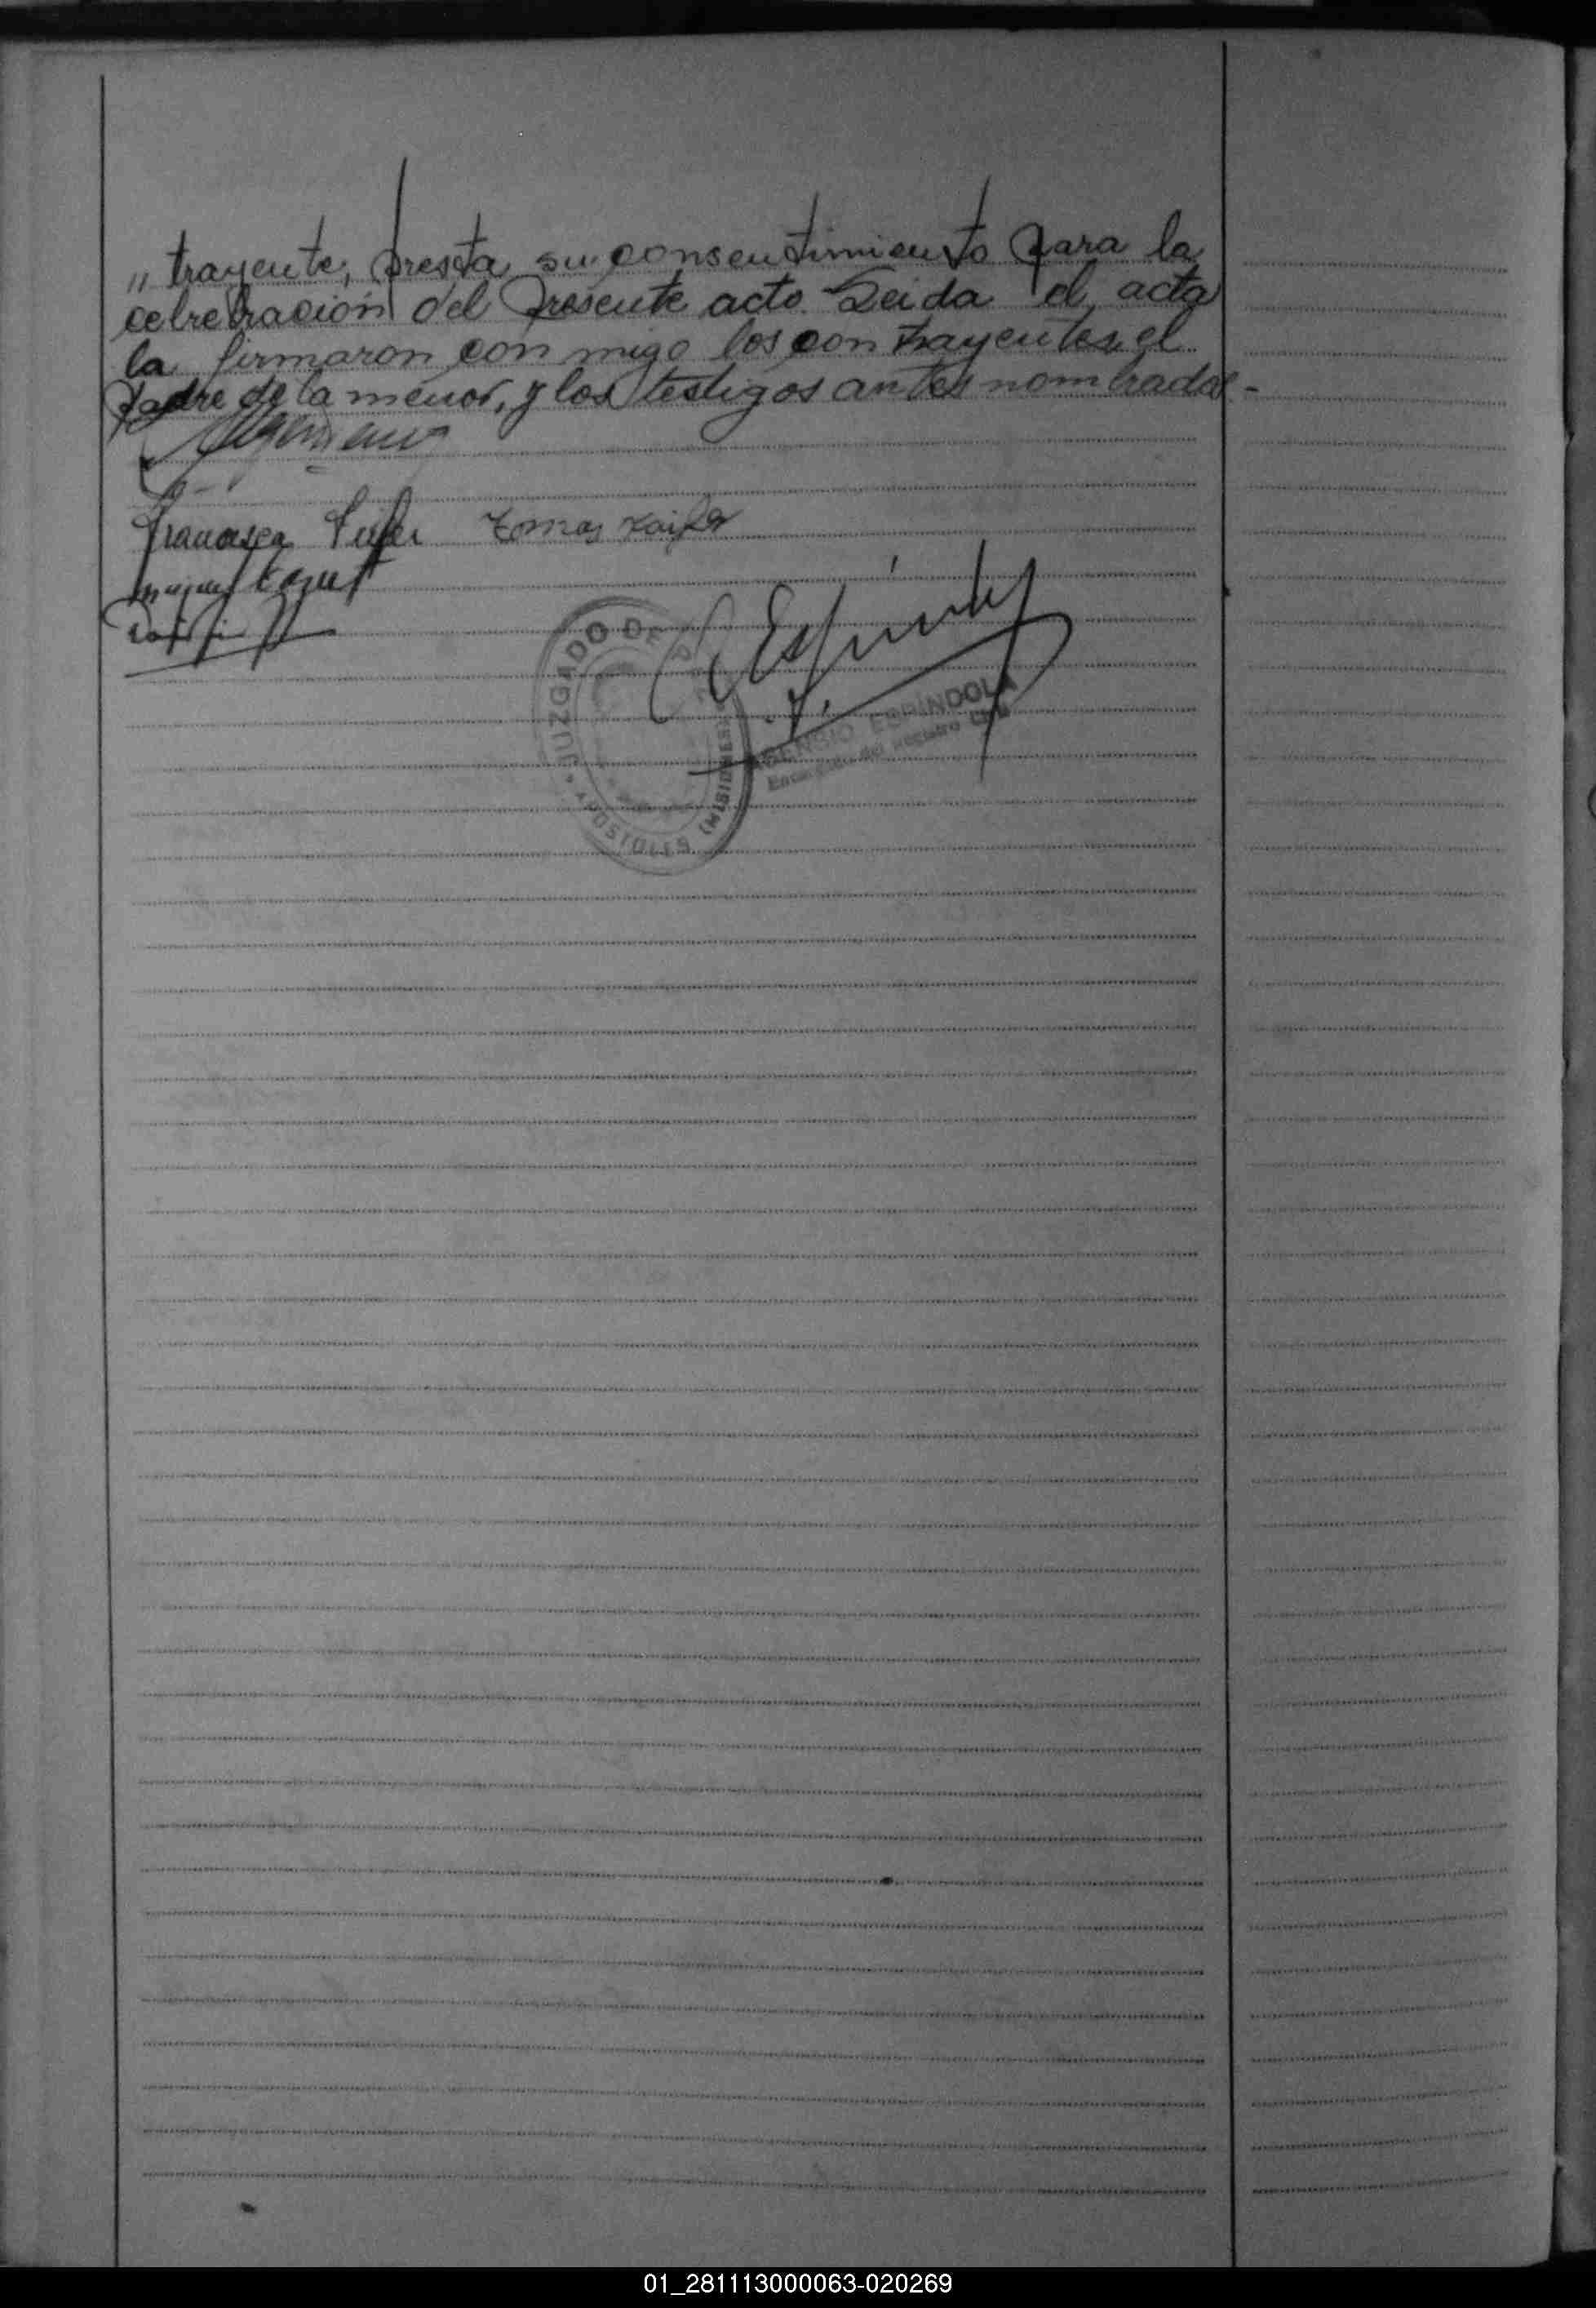 „ trayente, presta su consentimiento para la
celrebración del presente acto. Leida el acta
la firmaron con migo los con trayentes, el
padre de la menor, y los testigos antes nombrados.-
Francisca
Tomas
Miguel
Espindola
JUZGADO DE PAZ
APOSTOLES (MISIONES)
ASENSIO ESPINDOLA
Encargado del Registro Civil
01_281113000063-020269